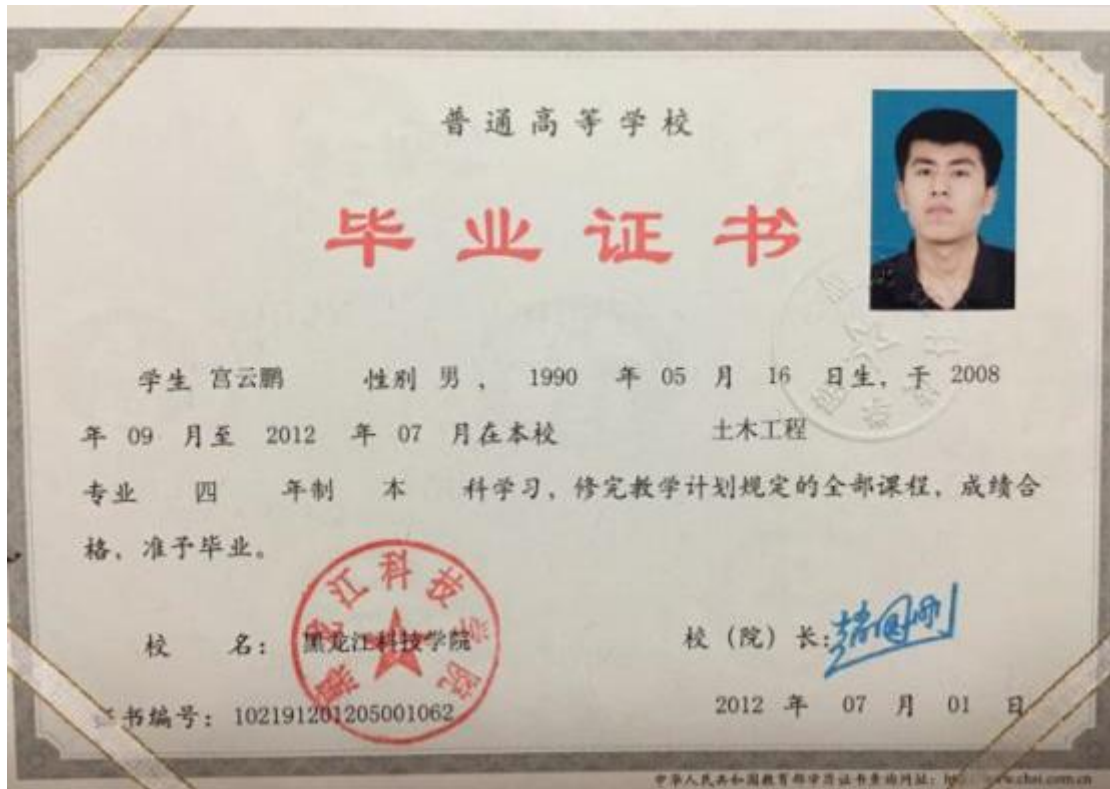 普通高等学校
毕业证书
学生 宫云鹏 性别 男 ， 1990 年 05 月 16 日生，于 2008
年 09 月至 2012 年 07 月在本校 土木工程
专业 四 年制 本 科学习，修完教学计划规定的全部课程，成绩合
格，准予毕业。
黑龙江科技学院
校 名：黑龙江科技学院 校（院）长：
证书编号：102191201205001062 2012 年 07 月 01 日
中华人民共和国教育部学历证书查询网址：